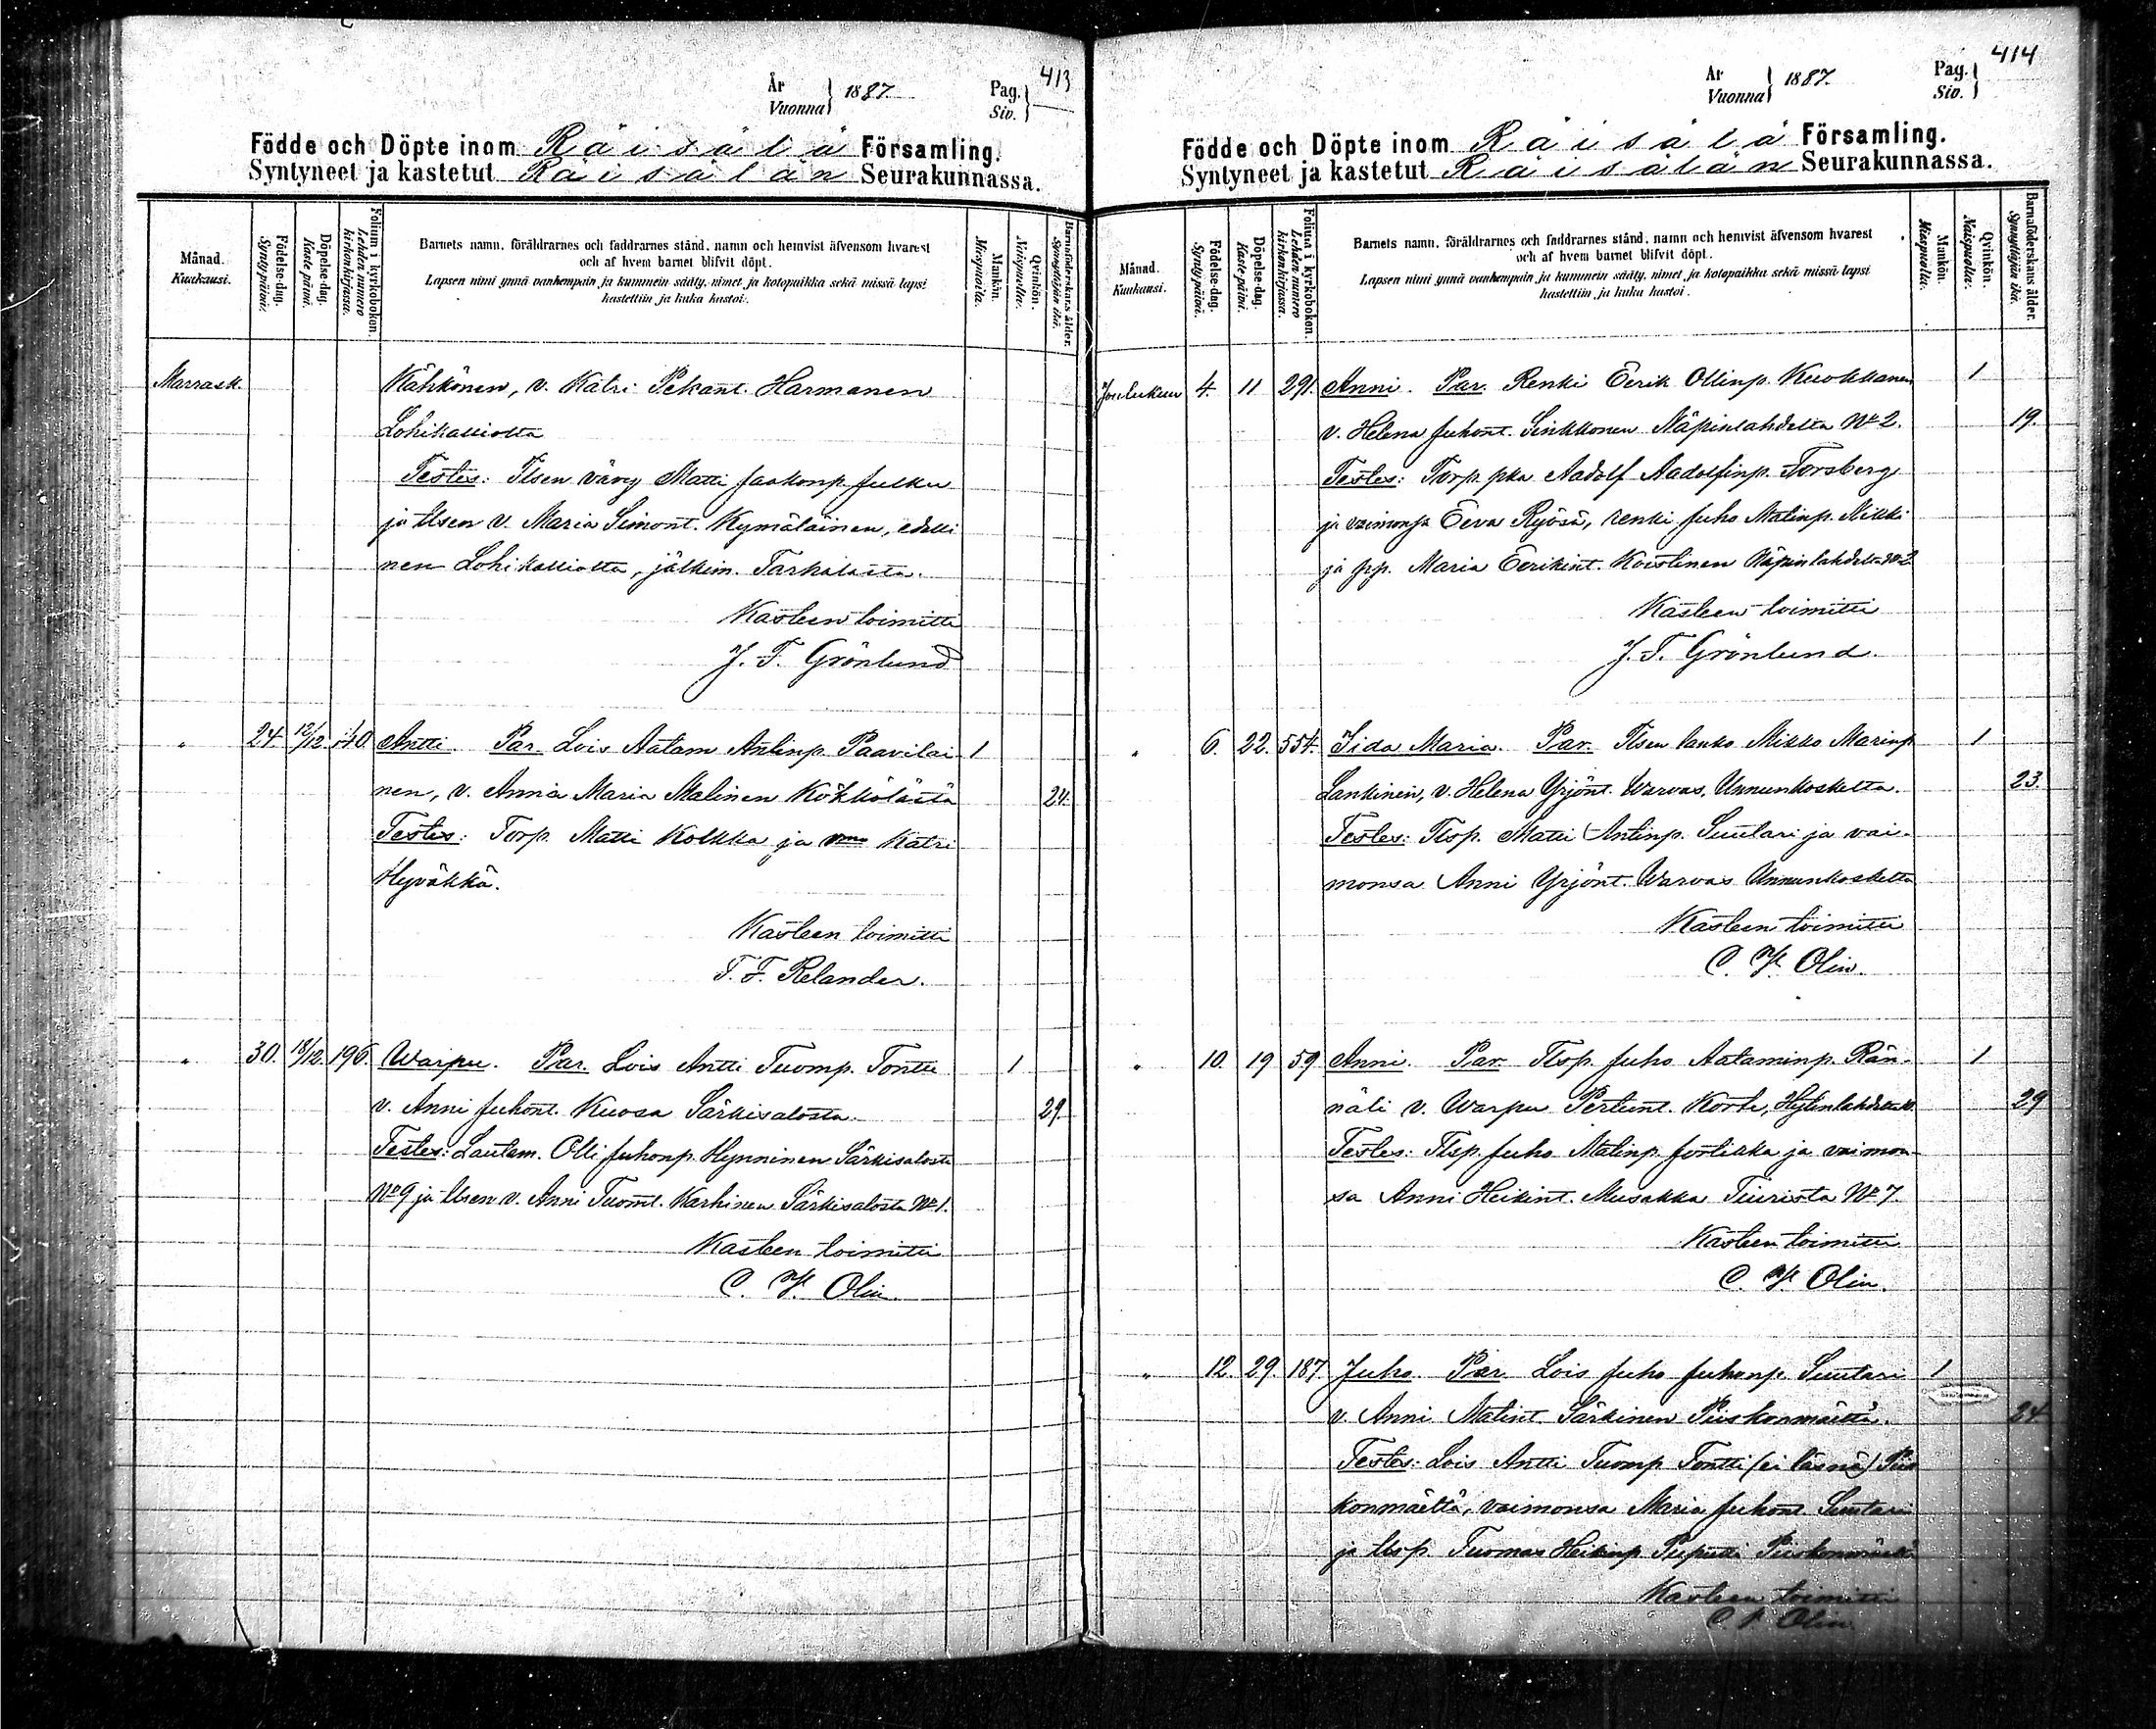 413
År
Vuonna
1887.
Pag.
Siv.
Födde och Döpte inom Räisälä Församling.
Syntyneet ja kastetut Räisälän Seurakunnassa.
Månad.
Kuukausi.
Födelse-dag.
Syntypäivä.
Döpelse-dag.
Kastepäivä.
Folium i kyrkoboken.
Lehden numero kirkonkirjassa.
Barnets namn, föräldrarnes och faddrarnes stånd, namn och hemvist äfvensom hvarest
och af hvem barnet blifvit döpt.
Lapsen nimi ynnä vanhempain ja kummein sääty, nimet ja kotopaikka sekä missä lapsi
kastettiin ja kuka kastoi.
Mankön.
Miespuolia.
Qvinkön.
Naispuolia.
Barnaföderskans ålder.
Synnyttäjän ikä.
Marrask. Kähkönen, v. Katri Pekant. Harmanen
Lohikalliolta
Testes: Itsen vävy Matti Jaakonp. Julku
ja Itsen v. Maria Simont. Kymäläinen, edelli
nen Lohikalliolta, jälkim. Tarkalasta.
Kasteen toimitti
J. F. Grönlund
" 24. 12/12. 140. Antti. Par. Lois Aatam Antinp. Paavilai- 1
nen, v. Anna Maria Malinen Kökkölästä 24.
Testes: Torp. Matti Kolkka ja Katri
Hyväkkä.
Kasteen toimitti
T. F. Relander.
" 30. 18/12. 196. Warpu. Par. Lois Antti Tuomp. Tontti 1
v. Anni Juhont. Kuosa Särkisalosta. 29.
Testes: Lautam. Olli Juhonp. Hynninen Särkisalosta
No 9 ja Itsen v. Anni Tuomt. Karhinen Särkisalosta No 1.
Kasteen toimitti
C. K. Olin.
414
År
Vuonna
1887.
Pag.
Siv.
Födde och Döpte inom Räisälä Församling.
Syntyneet ja kastetut Räisälän Seurakunnassa.
Månad.
Kuukausi.
Födelse-dag.
Syntypäivä.
Döpelse-dag.
Kastepäivä.
Folium i kyrkoboken.
Lehden numero kirkonkirjassa.
Barnets namn, föräldrarnes och faddrarnes stånd, namn och hemvist äfvensom hvarest
och af hvem barnet blifvit döpt.
Lapsen nimi ynnä vanhempain ja kummein sääty, nimet ja kotopaikka sekä missä lapsi
kastettiin ja kuka kastoi.
Mankön.
Miespuolia.
Qvinkön.
Naispuolia.
Barnaföderskans ålder.
Synnyttäjän ikä.
Joulukuu 4. 11 291. Anni. Par. Renki Eerik Ollinp. Kuokkanen 1
v. Helena Juhont. Sinkkonen Näpinlahdelta No 2. 19.
Testes: Torp. pka Aadolf Aadolfinp. Forsberg
ja vaimonsa Eeva Ryösä, renki Juho Matinp. Mikki
ja pp. Maria Eerikint. Koistinen Näpinlahdelta No 2
Kasteen toimitti
J. F. Grönlund.
" 6. 22. 554. Iida Maria. Par. Itsen lanko Mikko Marinp. 1
Lankinen, v. Helena Yrjönt. Warvas, Unnunkoskelta. 23.
Testes: Itsp. Matti Antinp. Suutari ja vai-
monsa Anni Yrjönt. Warvas Unnunkoskelta
Kasteen toimitti
C. K. Olin.
" 10. 19 59 Anni. Par. Itsp. Juho Aataminp. Rän- 1
näli v. Warpu Pertunt. Korte, Hytinlahdelta 29
Testes: Itsp. Juho Matinp. Jortikka ja vaimon-
sa Anni Heikint. Musakka Tiurista No 7.
Kasteen toimitti
C. K. Olin.
" 12. 29. 187. Juho. Par. Lois Juho Juhonp. Suutari 1
v. Anni Matint. Särkinen Piiskonmäeltä. 24
Testes: Lois Antti Tuomp. Tontti (ei läsnä) Piis
konmäeltä, vaimonsa Maria Juhont. Suutari
ja Itsp. Tuomas Heikinp. Piiskonmäeltä
Kasteen toimitti
C. K. Olin